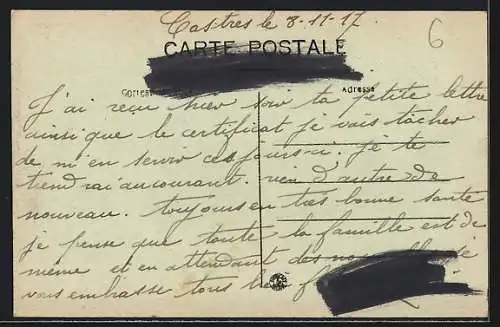 Castres le 3-11-17
6
CARTE POSTALE
Corres
Adresse
J'ai reçu hier soir ta petite lettre
ainsi que le certificat je vais tâcher
de m'en servir ces jours-ci. je te
tiendrai au courant. rien d'autre de
nouveau. toujours en très bonne santé
je pense que toute la famille est de
même et en attendant des nouvelles je
vous embrasse tous